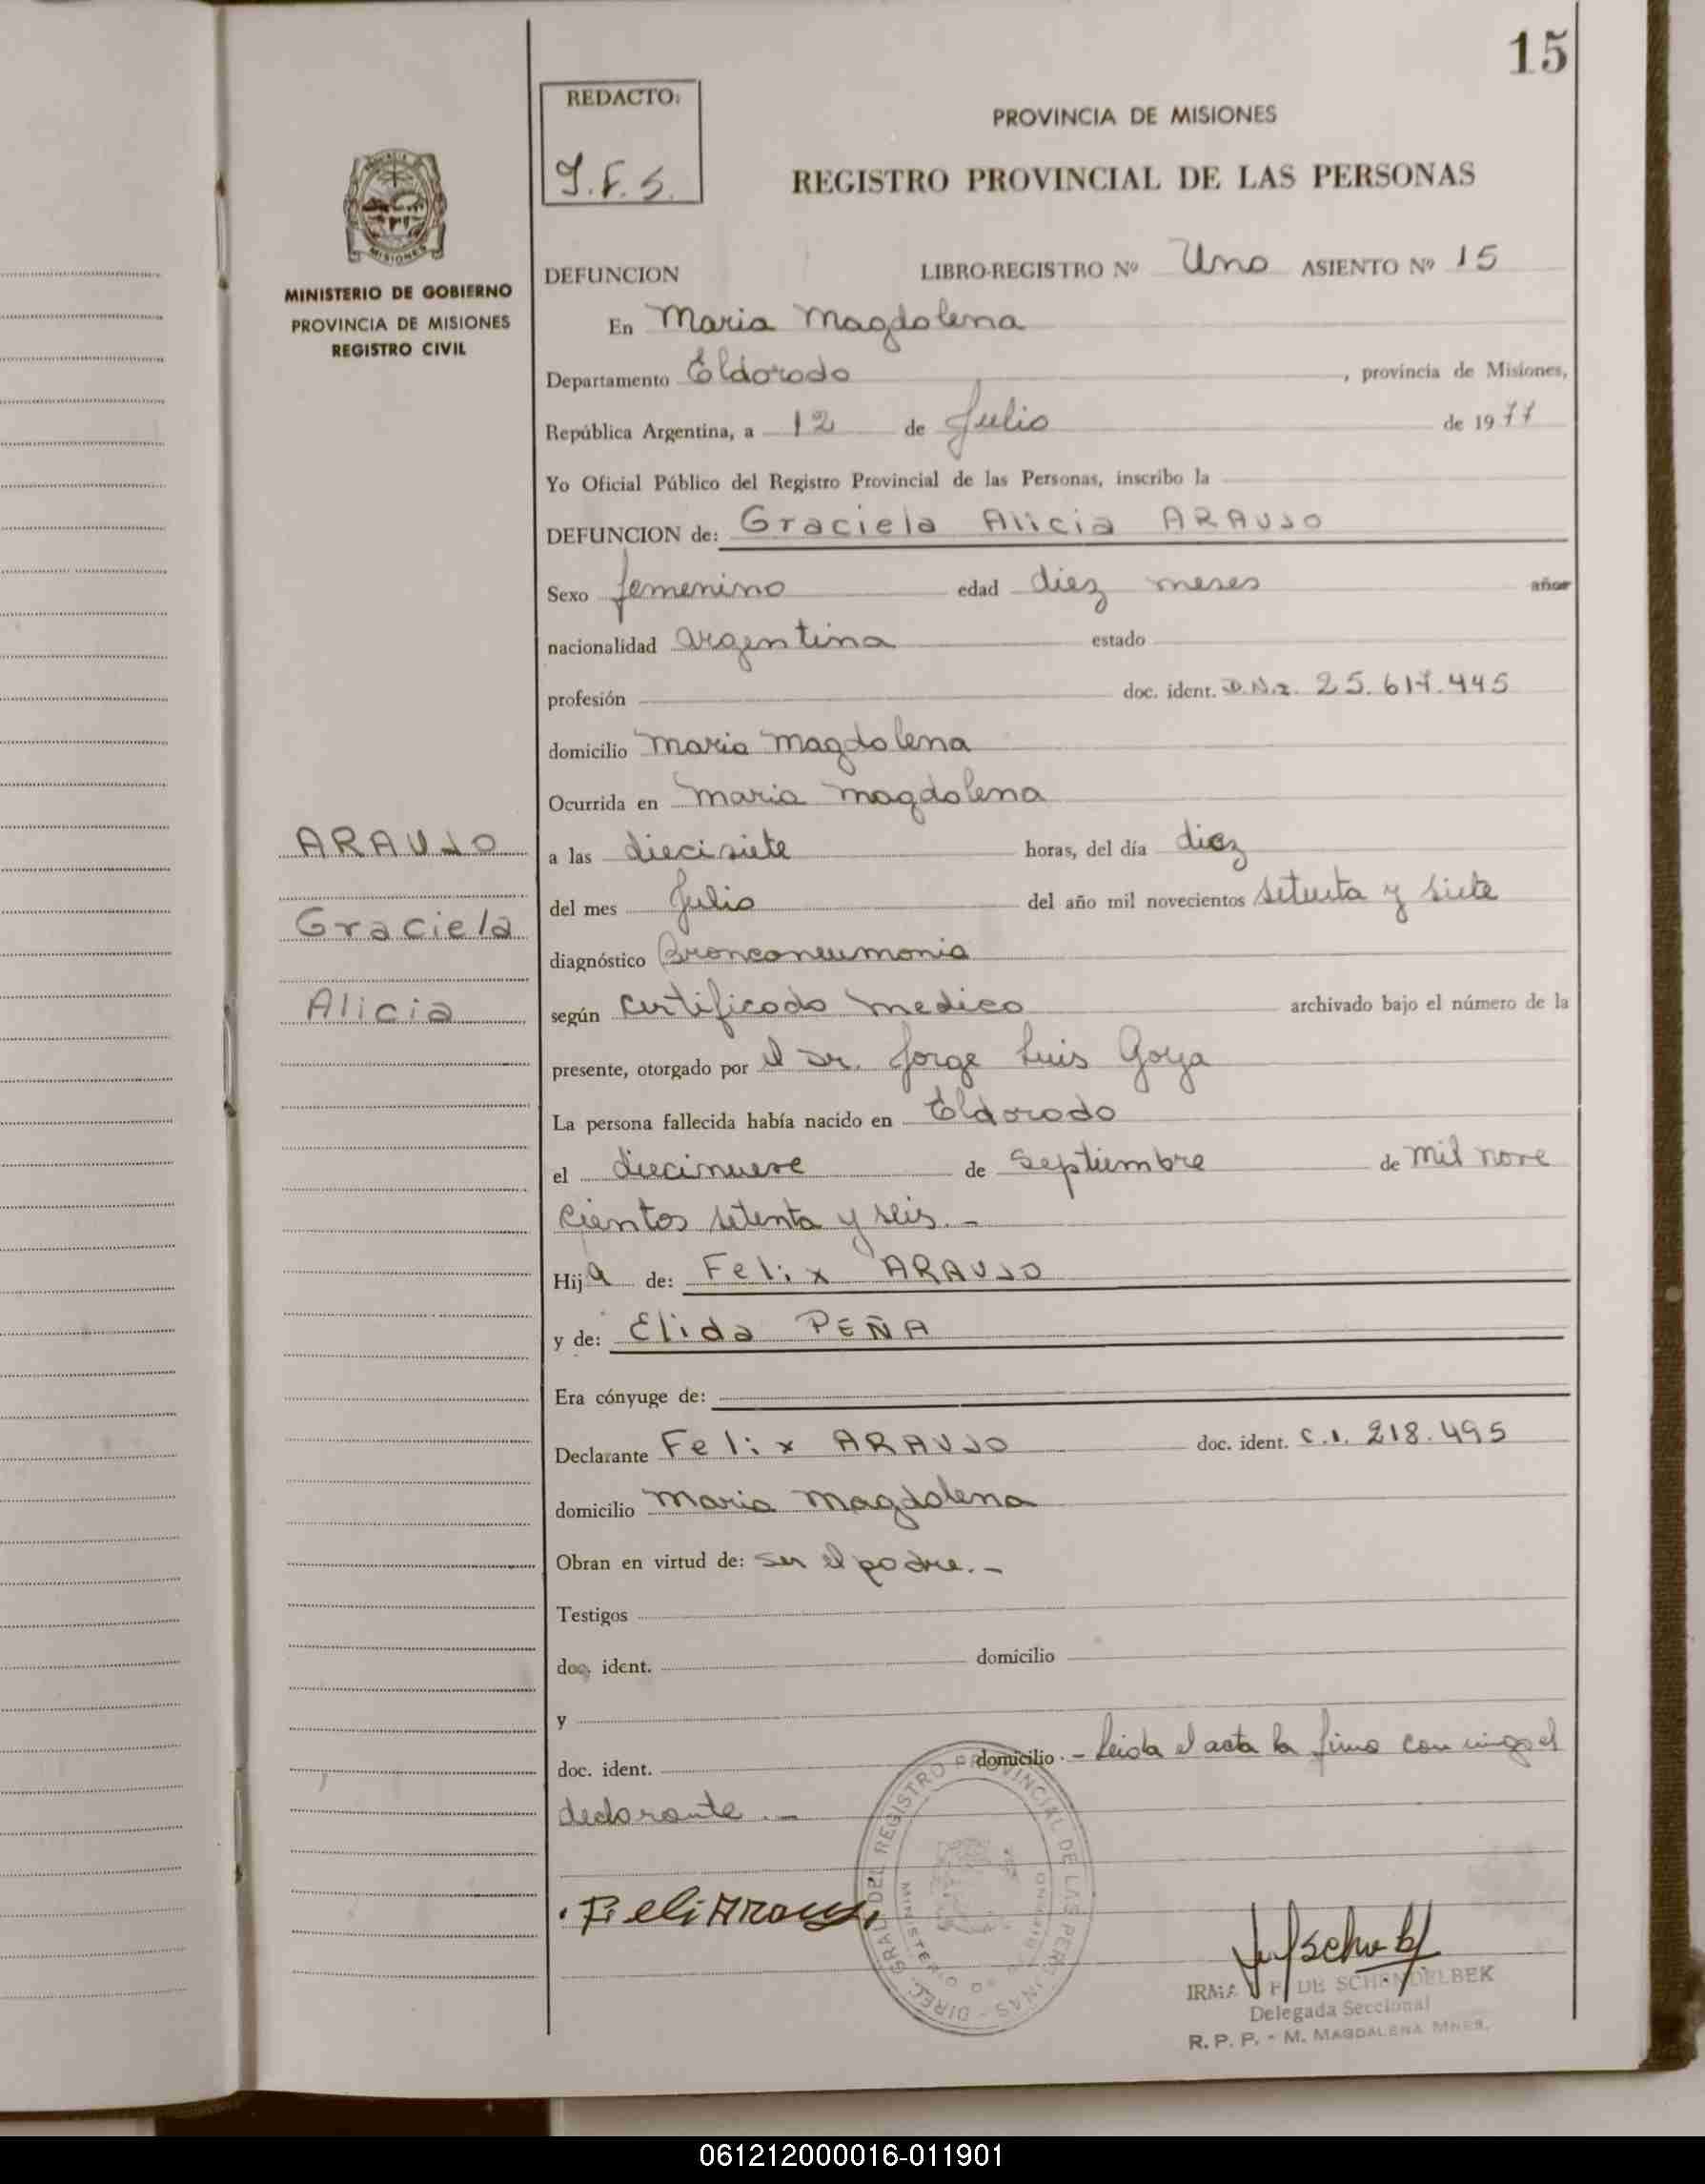 15
REDACTO:
PROVINCIA DE MISIONES
REGISTRO PROVINCIAL DE LAS PERSONAS
MINISTERIO DE GOBIERNO
PROVINCIA DE MISIONES
REGISTRO CIVIL
DEFUNCION LIBRO-REGISTRO Nº Uno ASIENTO Nº 15
En Maria Magdalena
Departamento Eldorado, provincia de Misiones,
República Argentina, a 12 de Julio de 1977
Yo Oficial Público del Registro Provincial de las Personas, inscribo la
DEFUNCION de: Graciela Alicia ARAUJO
Sexo femenino edad diez meses años
nacionalidad argentina estado
profesión doc. ident. D.N.I. 25.617.445
domicilio Maria Magdalena
Ocurrida en Maria Magdalena
a las diecisiete horas, del día diez
del mes Julio del año mil novecientos setenta y siete
diagnóstico Bronconeumonia
según certificado medico archivado bajo el número de la
presente, otorgado por el Dr. Jorge Luis Goya
La persona fallecida había nacido en Eldorado
el diecinueve de septiembre de mil nove
cientos setenta y seis.-
Hija de: Felix ARAUJO
y de: Elida PEÑA
Era cónyuge de:
Declarante Felix ARAUJO doc. ident. C.I. 218.495
domicilio Maria Magdalena
Obran en virtud de: ser el padre.-
Testigos
doc. ident. domicilio
y
doc. ident. domicilio.- Leida el acta la firma con migo el
declarante.-
ARAUJO
Graciela
Alicia
DIREC. GRAL DEL REGISTRO PROVINCIAL DE LAS PERSONAS
MINISTERIO DE
IRMA F DE SCHENDELBEK
Delegada Seccional
R. P. P. - M. MAGDALENA MNES.
061212000016-011901